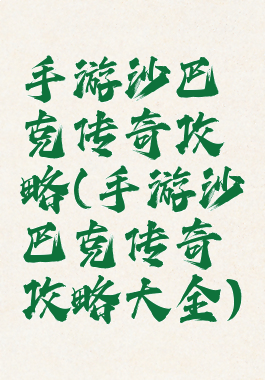 手游沙巴
克传奇攻
略(手游沙
巴克传奇
攻略大全)